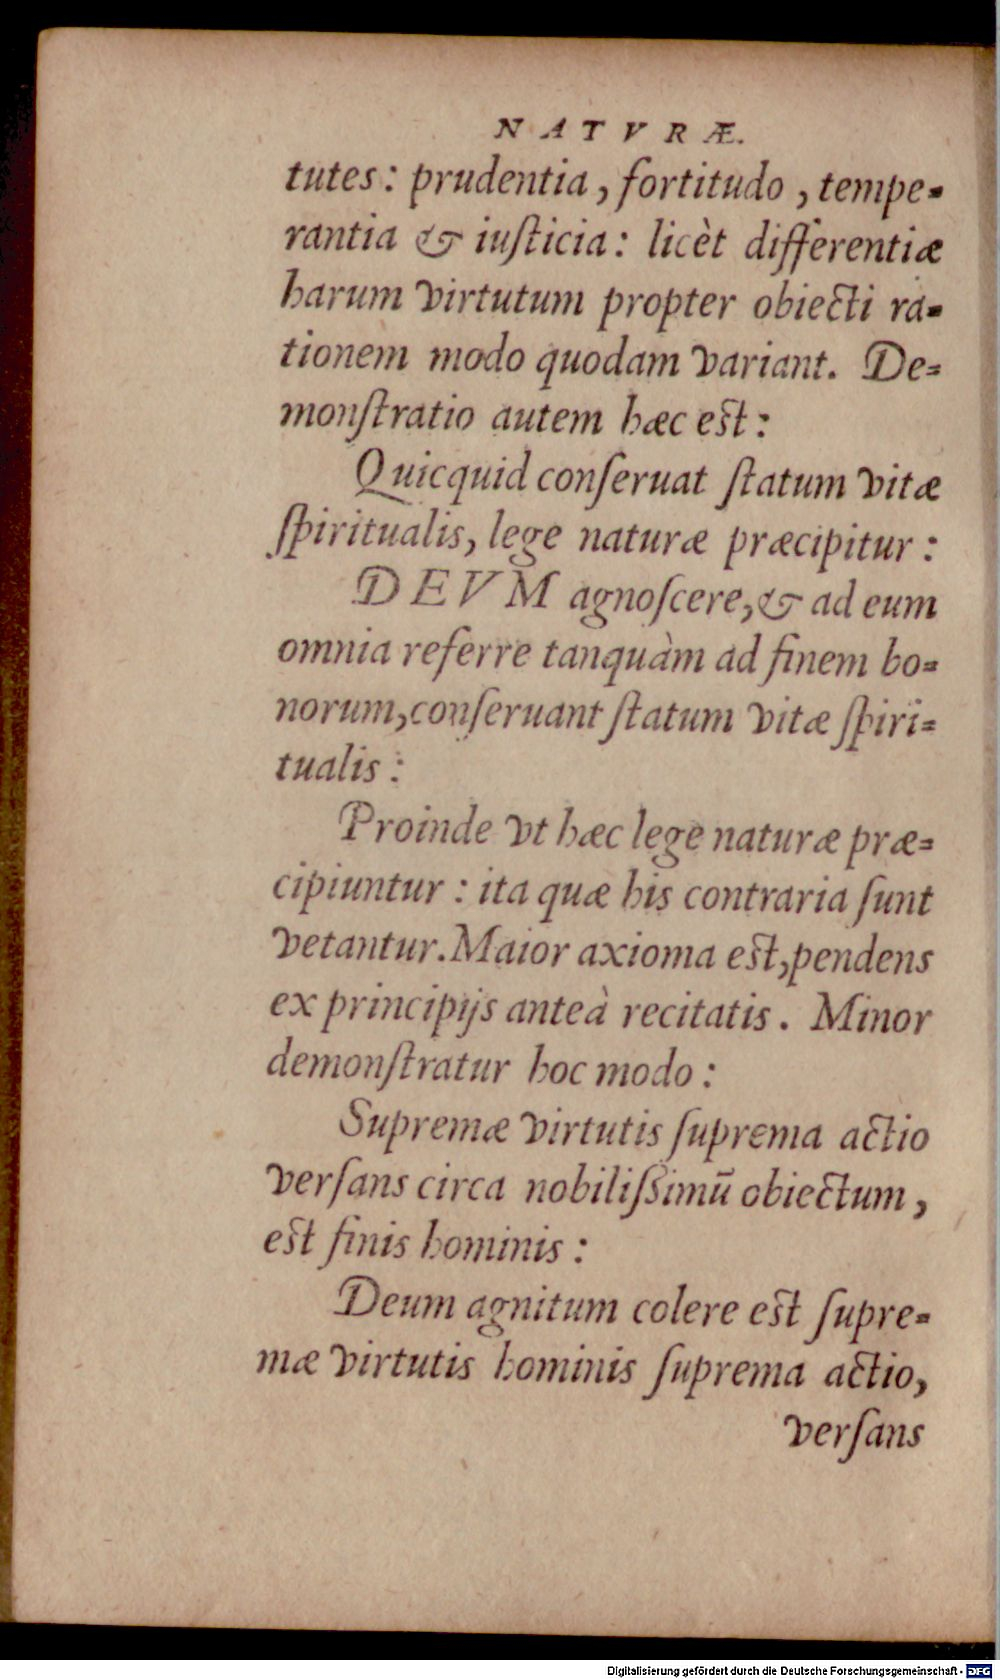 NATVRÆ.
tutes: prudentia, fortitudo, tempe-
rantia & iuſticia: licèt differentiæ
harum virtutum propter obiecti ra-
tionem modo quodam variant. De-
monſtratio autem hæc eſt:
Quicquid conſeruat ſtatum vitæ
ſpiritualis, lege naturæ præcipitur:
DEVM agnoſcere, & ad eum
omnia referre tanquàm ad finem bo-
norum, conſeruant ſtatum vitæ ſpiri-
tualis:
Proinde vt hæc lege naturæ præ-
cipiuntur: ita quæ his contraria ſunt
vetantur. Maior axioma eſt, pendens
ex principijs anteà recitatis. Minor
demonſtratur hoc modo:
Supremæ virtutis ſuprema actio
verſans circa nobiliſsimū obiectum,
eſt finis hominis:
Deum agnitum colere eſt ſupre-
mæ virtutis hominis ſuprema actio,
verſans
Digitalisierung gefördert durch die Deutsche Forschungsgemeinschaft - DFG